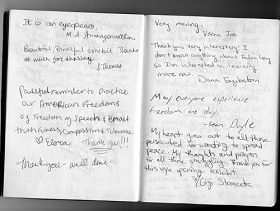 It is an eyeopener.
M.A. Annapoornamma
Beautiful Powerful exhibit. Thanks
so much for sharing.
Thomas
Powerful reminder to Practice
our American Freedoms
of Freedom of Speech & Exact
Truthfulness, Compassion & Tolerance
Elora Thank you!!!
Marvelous - well done.
Very moving.
Veena Iyer
Thank you, very interesting! I
don't know anything about Falun Gong
so I'm interested in learning
more now.
Dana
May everyone experience
freedom one day.
Sean Doyle
My heart goes out to all those
persecuted for wanting to spread
peace. My thoughts and prayers
to all those struggling. Thank you for
this eye opening exhibit.
Gigi